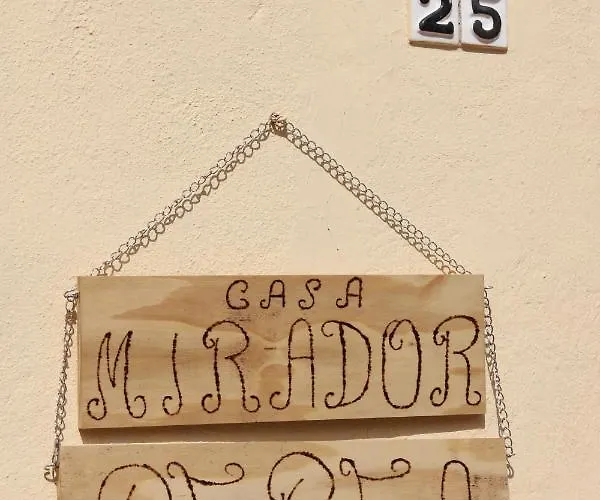 25
CASA
MIRADOR